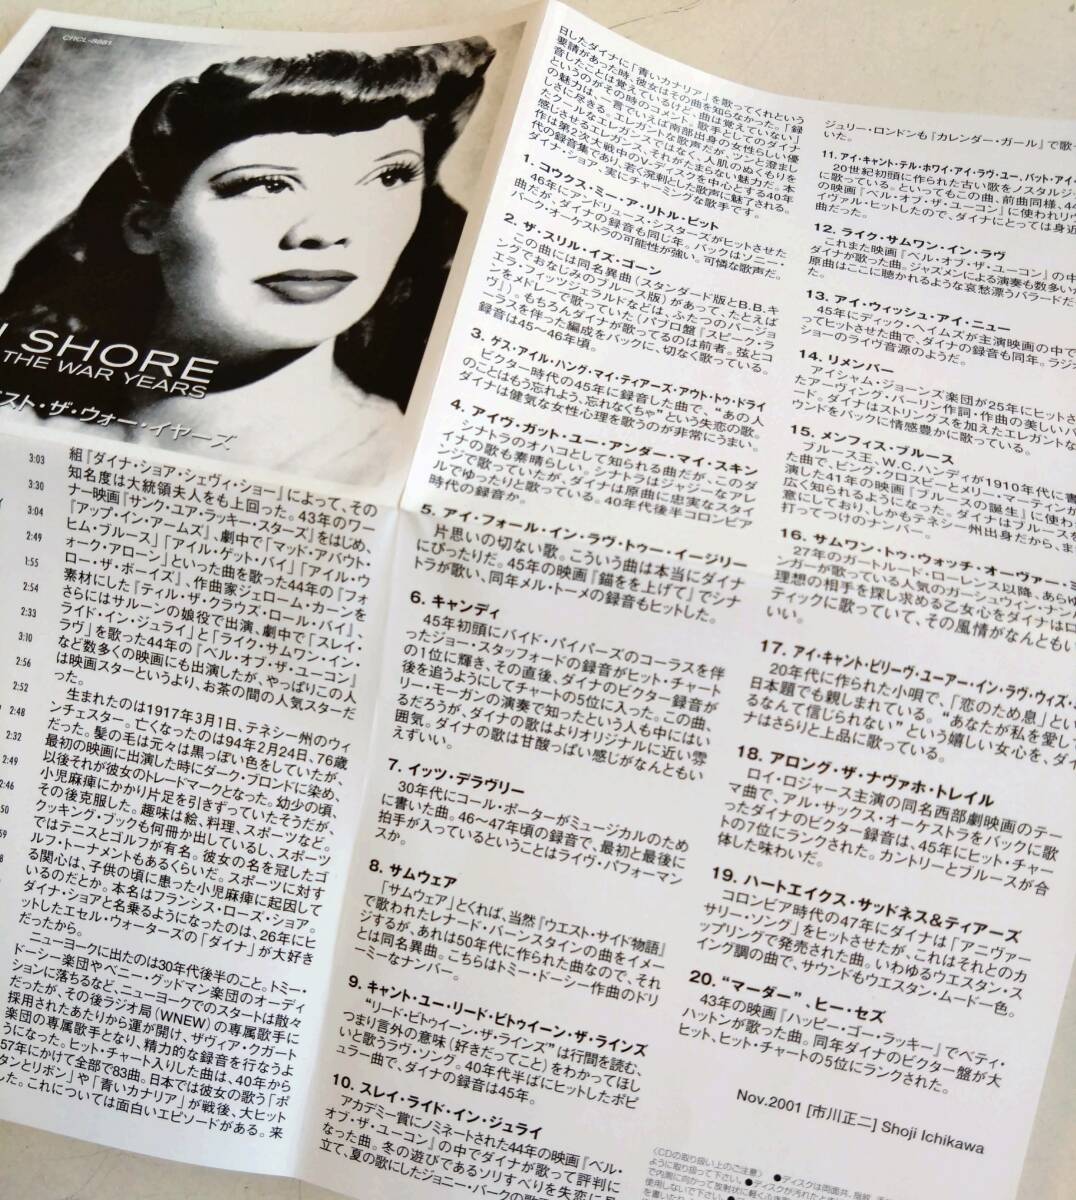 CHCL-8881
SHORE
THE WAR YEARS
スト・ザ・ウォー・イヤーズ
3:03
3:30
3:04
2:49
1:55
2:54
2:33
3:10
2:56
2:52
2:48
2:32
2:49
2:46
組『ダイナ・ショア・シェヴィ・ショー』によって、その
知名度は大統領夫人をも上回った。43年のワー
ナー映画『サンク・ユア・ラッキー・スターズ』をはじめ、
『アップ・イン・アームズ』、劇中で「マッド・アバウト・
ヒム・ブルース」「アイル・ゲット・バイ」「アイル・ウ
ォーク・アローン」といった曲を歌った44年の『フォ
ロー・ザ・ボーイズ』、作曲家ジェローム・カーンを
素材にした『ティル・ザ・クラウズ・ロール・バイ』、
さらにはサルーンの娘役で出演、劇中で「スレイ・
ライド・イン・ジュライ」と「ライク・サムワン・イン・
ラヴ」を歌った44年の『ベル・オブ・ザ・ユーコン』
など数多くの映画にも出演したが、やっぱりこの人
は映画スターというより、お茶の間の人気スターだ
った。
生まれたのは1917年3月1日、テネシー州のウィ
ンチェスター。亡くなったのは94年2月24日、76歳
だった。髪の毛は元々は黒っぽい色をしていたが、
最初の映画に出演した時にダーク・ブロンドに染め、
以後それが彼女のトレードマークとなった。幼少の頃、
小児麻痺にかかり片足を引きずっていたそうだが、
その後克服した。趣味は絵、料理、スポーツなど。
クッキング・ブックも何冊か出しているし、スポーツ
ではテニスとゴルフが有名。彼女の名を冠したゴ
ルフ・トーナメントもあるくらいだ。スポーツに対す
る関心は、子供の頃に患った小児麻痺に起因して
いるのだとか。本名はフランシス・ローズ・ショア。
ダイナ・ショアと名乗るようになったのは、26年にヒ
ットしたエセル・ウォーターズの「ダイナ」が大好き
だったから。
ニューヨークに出たのは30年代後半のこと。トミー・
ドーシー楽団やベニー・グッドマン楽団のオーディ
ションに落ちるなど、ニューヨークでのスタートは散々
だったが、その後ラジオ局(WNEW)の専属歌手に
採用されたあたりから運が開け、ザヴィア・クガート
楽団の専属歌手となり、精力的な録音を行なうよ
うになった。ヒット・チャート入りした曲は、40年から
57年にかけて全部で83曲。日本では彼女の歌う「ボ
タンとリボン」や「青いカナリア」が戦後、大ヒット
した。これについては面白いエピソードがある。来
日したダイナに「青いカナリア」を歌ってくれという
要請があった時、彼女はその曲を知らなかった。「録
音したことは覚えているけど、曲は覚えていない」
というのがその時のコメント。歌手としてのダイナ
の魅力は、一言でいえば南部出身の女性らしい優
しさに尽きる。エレガントな歌声だが、ツンと澄まし
たクールなエレガンスではなく、人肌のぬくもりを
感じさせるエレガンス、それがたまらない魅力だ。本
作は第2次大戦中のVディスクを中心とする40年
代の録音集であり、若く溌剌とした歌声に魅了される。
ダイナ・ショア、実にチャーミングな歌手です。
1. コウクス・ミー・ア・リトル・ビット
46年にアンドリュース・シスターズがヒットさせた
曲だが、ダイナの録音も同じ年。バックはソニー・
バーク・オーケストラの可能性が強い。可憐な歌声だ。
2. ザ・スリル・イズ・ゴーン
この曲には同名異曲(スタンダード版とB.B.キ
ングでおなじみのブルース版)があって、たとえば
エラ・フィッツジェラルドなどは、ふたつのバージョ
ンをメドレーで歌っていた(パブロ盤『スピーク・ラ
ヴ』)。もちろんダイナが歌ってるのは前者。弦とコ
ーラスを伴った編成をバックに、切なく歌っている。
録音は45～46年頃。
3. ゲス・アイル・ハング・マイ・ティアーズ・アウト・トゥ・ドライ
ビクター時代の45年に録音した曲で、“あの人
のことはもう忘れよう、忘れなくちゃ”という失恋の歌。
ダイナは健気な女性心理を歌うのが非常にうまい。
4. アイヴ・ガット・ユー・アンダー・マイ・スキン
シナトラのオハコとして知られる曲だが、このダ
イナの歌も素晴らしい。シナトラはジャジーなアレ
ンジで歌っていたが、ダイナは原曲に忠実なスタイ
ルでゆったりと歌っている。40年代後半コロンビア
時代の録音か。
5. アイ・フォール・イン・ラヴ・トゥー・イージリー
片思いの切ない歌。こういう曲は本当にダイナ
にぴったりだ。45年の映画『錨をを上げて』でシナ
トラが歌い、同年メル・トーメの録音もヒットした。
6. キャンディ
45年初頭にパイド・パイパーズのコーラスを伴
ったジョー・スタッフォードの録音がヒット・チャート
の1位に輝き、その直後、ダイナのビクター録音が
後を追うようにしてチャートの5位に入った。この曲、
リー・モーガンの演奏で知ったという人も中にはい
るだろうが、ダイナの歌はよりオリジナルに近い雰
囲気。ダイナの歌は甘酸っぱい感じがなんともい
えずいい。
7. イッツ・デラヴリー
30年代にコール・ポーターがミュージカルのため
に書いた曲。46～47年頃の録音で、最初と最後に
拍手が入っているということはライヴ・パフォーマン
スか。
8. サムウェア
「サムウェア」とくれば、当然『ウエスト・サイド物語』
で歌われたレナード・バーンスタインの曲をイメー
ジするが、あれは50年代に作られた曲なので、それ
とは同名異曲。こちらはトミー・ドーシー作曲のドリ
ーミーなナンバー。
9. キャント・ユー・リード・ビトゥイーン・ザ・ラインズ
“リード・ビトゥイーン・ザ・ラインズ”は行間を読む、
つまり言外の意味(好きだってこと)をわかってほし
いと歌うラヴ・ソング。40年代半ばにヒットしたポピ
ュラー曲で、ダイナの録音は45年。
10. スレイ・ライド・イン・ジュライ
アカデミー賞にノミネートされた44年の映画『ベル・
オブ・ザ・ユーコン』の中でダイナが歌って評判に
なった曲。冬の遊びであるソリすべりを失恋に見
立て、夏の歌にしたジョニー・バークの歌
ジュリー・ロンドンも『カレンダー・ガール』で歌っ
いた。
11. アイ・キャント・テル・ホワイ・アイ・ラヴ・ユー、バット・アイ・
20世紀初頭に作られた古い歌をノスタルジ
に歌っている。といってもこの曲、前曲同様、44
の映画『ベル・オブ・ザ・ユーコン』に使われリヴ
ァイヴァル・ヒットしたので、ダイナにとっては身近
曲だった。
12. ライク・サムワン・イン・ラヴ
これまた映画『ベル・オブ・ザ・ユーコン』の中
ダイナが歌った曲。ジャズメンによる演奏も数多いが
原曲はここに聴かれるような哀愁漂うバラードだ
た。
13. アイ・ウィッシュ・アイ・ニュー
45年にディック・ヘイムズが主演映画の中で
ってヒットさせた曲で、ダイナの録音も同年。ラジオ
ショーのライヴ音源のようだ。
14. リメンバー
アイシャム・ジョーンズ楽団が25年にヒットさ
たアーヴィング・バーリン作詞・作曲の美しいバ
ード。ダイナはストリングスを加えたエレガントな
ウンドをバックに情感豊かに歌っている。
15. メンフィス・ブルース
ブルース王、W.C.ハンディが1910年代に書
た曲で、ビング・クロスビーとメリー・マーティンが
演した41年の映画『ブルースの誕生』に使わ
広く知られるようになった。ダイナはブルースを
意にしており、しかもテネシー州出身だから、ま
打ってつけのナンバー。
16. サムワン・トゥ・ウォッチ・オーヴァー・ミ
27年のガートルード・ローレンス以降、あらゆ
ンガーが歌っている人気のガーシュウィン・ナン
理想の相手を探し求める乙女心をダイナはロ
ティックに歌っていて、その風情がなんともい
いい。
17. アイ・キャント・ビリーヴ・ユーアー・イン・ラヴ・ウィズ・
20年代に作られた小唄で、「恋のため息」とい
日本題でも親しまれている。“あなたが私を愛して
るなんて信じられない”という嬉しい女心を、ダイ
ナはさらりと上品に歌っている。
18. アロング・ザ・ナヴァホ・トレイル
ロイ・ロジャース主演の同名西部劇映画のテー
マ曲で、アル・サック・オーケストラをバックに歌
ったダイナのビクター録音は、45年にヒット・チャー
トの7位にランクされた。カントリーとブルースが合
体した味わいだ。
19. ハートエイクス・サッドネス&ティアーズ
コロンビア時代の47年にダイナは「アニヴァー
サリー・ソング」をヒットさせたが、これはそれとのカ
ップリングで発売された曲。いわゆるウエスタン・ス
イング調の曲で、サウンドもウエスタン・ムード一色。
20. “マーダー”、ヒー・セズ
43年の映画『ハッピー・ゴー・ラッキー』でベティ・
ハットンが歌った曲。同年ダイナのビクター盤が大
ヒット、ヒット・チャートの5位にランクされた。
Nov.2001 [市川正二] Shoji Ichikawa
〈CDの取り扱い上のご注意〉